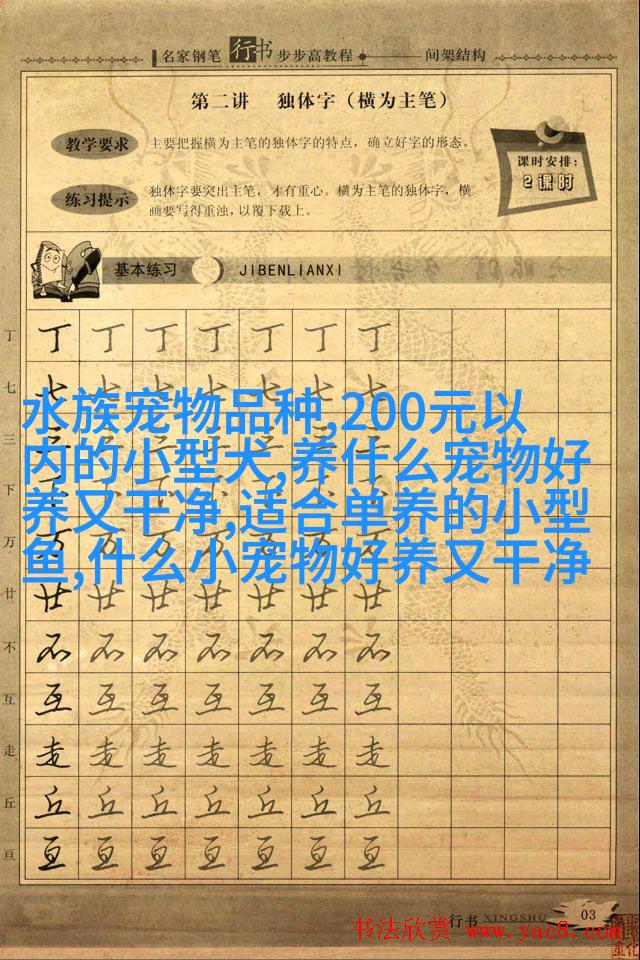 名家钢笔 行书 步步高教程 间架结构
第二讲 独体字（横为主笔）
教学要求
主要把握横为主笔的独体字的特点，确立好字的形态。
课时安排：
2课时
练习提示
独体字要突出主笔，才有重心。横为主笔的独体字，横
画要写得重浊，以覆下载上。
基本练习 JIBENLIANXI
丁 丁 丁 丁 丁 丁 丁 丁
七 七 七 七 七 七 七 七
水族宠物品种,200元以
三
内的小型犬,养什么宠物好
下
养又干净,适合单养的小型
万 万 万 万 万 万 万 万
鱼,什么小宠物好养又干净
廿 廿 廿 廿 廿 廿 廿 廿
不 不 不 不 不 不 不 不
互 互 互 互 互 互 互 互
走 走 走 走 走 走 走 走
丘 丘 丘 丘 丘 丘 丘 丘
亘 亘 亘 亘 亘 亘 亘 亘
行书 XINGSHU 03
书法欣赏 www.yac8.com